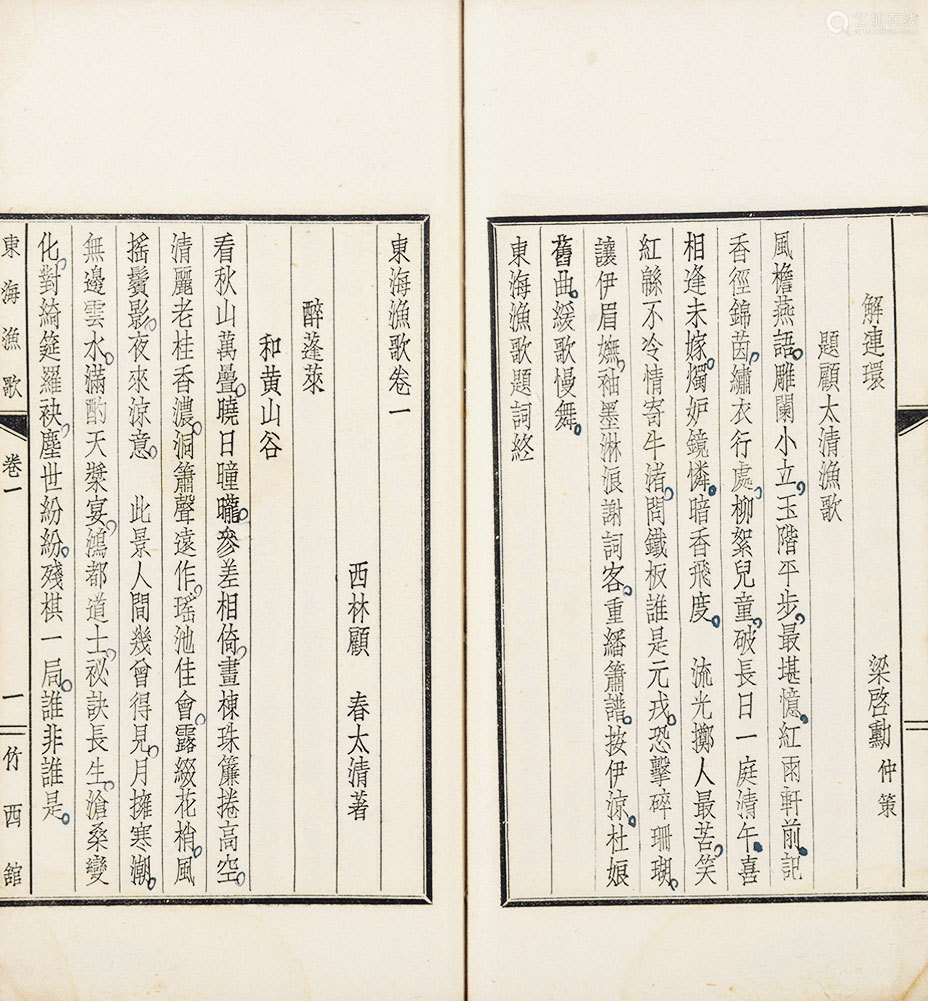 解連環
題顧太清漁歌
梁啓勳仲策
風檐燕語。雕闌小立,玉階平步,最堪憶、紅雨軒前,記
香徑錦茵,繡衣行處,柳絮兒童,破長日一庭清午、喜
相逢未嫁,燭妒鏡憐,暗香飛度。　流光擲人最苦。笑
紅緜不冷,情寄牛渚,問鐵板誰是元戎,恐擊碎珊瑚,
讓伊眉嫵,袖墨淋浪謝詞客。重繙簫譜。按伊涼、杜娘
舊曲,緩歌慢舞。
東海漁歌題詞終
東海漁歌卷一
西林顧　春太清著
醉蓬萊
和黃山谷
看秋山萬疊,曉日曈曨,參差相倚,畫棟珠簾,捲高空
清麗,老桂香濃,洞簫聲遠,作瑤池佳會,露綴花梢,風
搖鬢影,夜來涼意。　此景人間,幾曾得見,月擁寒潮,
無邊雲水,滿酌天漿,宴鴻都道士,祕訣長生,滄桑變
化,對綺筵羅袂,塵世紛紛,殘棋一局,誰非誰是。
東海漁歌　卷一　一　竹西館